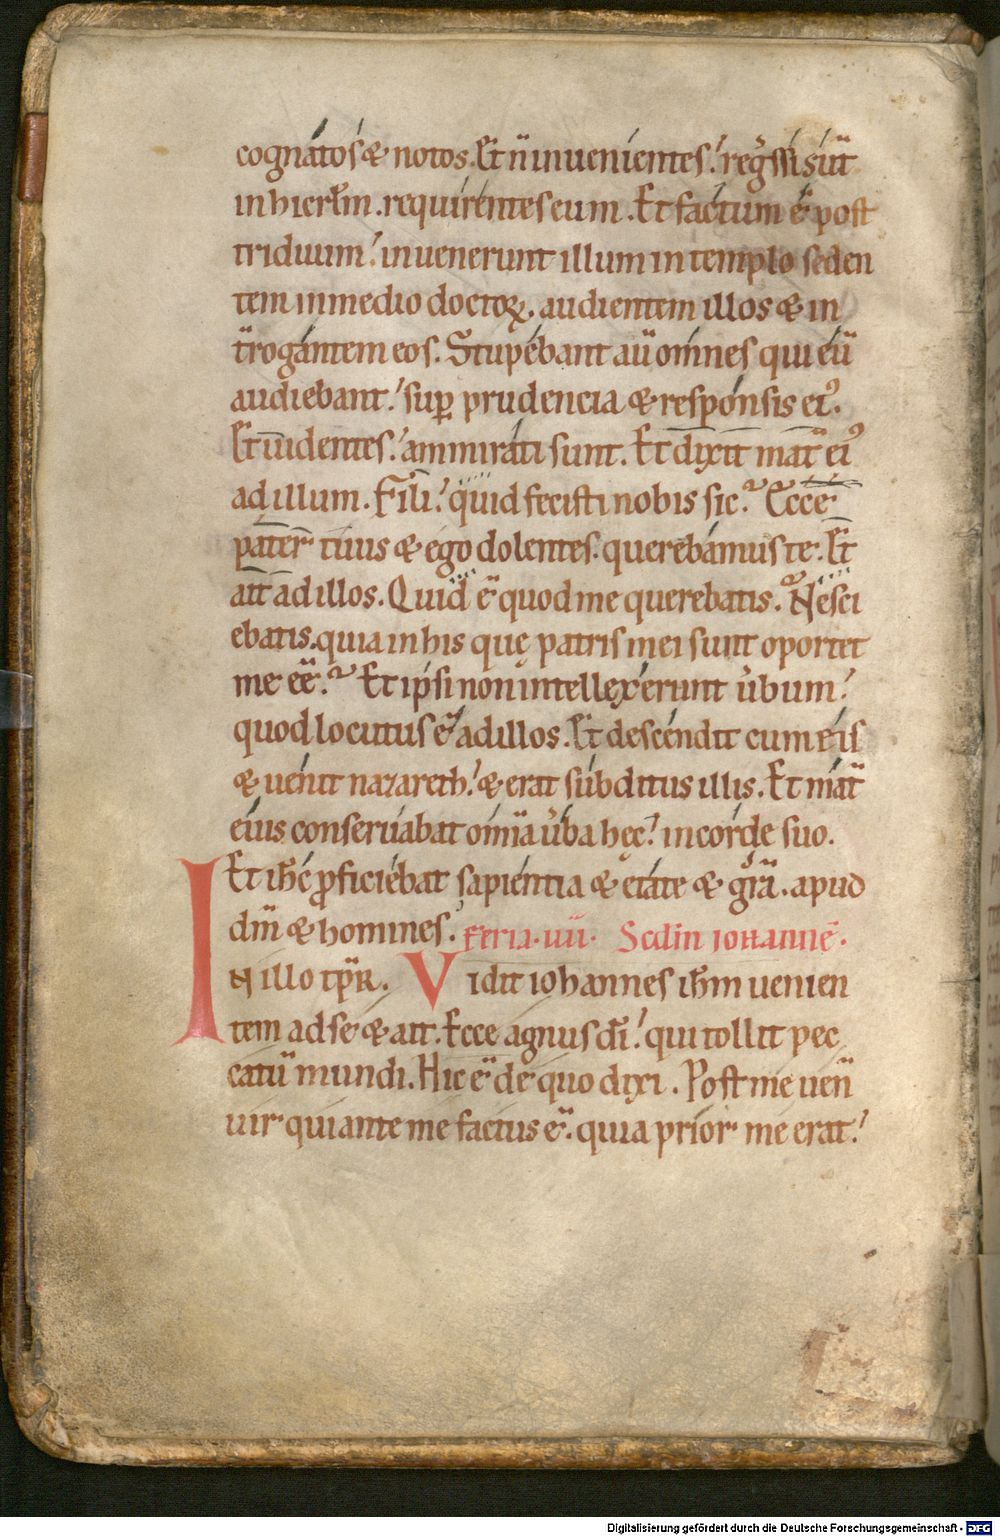 cognatos & notos. Et n̄ inuenientes! reg̃ssi sūt
in hierl̄m. requirentes eum. Et factum ē post
triduum! inuenerunt illum in templo seden
tem in medio doctoꝝ. audientem illos & in
t̄rogantem eos. Stupebant aū omnes qui eū
audiebant! suꝑ prudencia & responsis eiꝰ.
Et uidentes! ammirati sunt. Et dixit mat̄ eiꝰ
ad illum. Fili! quid fecisti nobis sic? Ecce
pater tuus & ego dolentes. querebamus te. Et
ait ad illos. Quid ē quod me querebatis? Nesci
ebatis. quia in his quę patris mei sunt oportet
me eē? Et ipsi non intellexerunt u̔bum!
quod locutus ē ad illos. Et descendit cum eis
& uenit nazareth! & erat subditus illis. Et mat̄
eius conseruabat om̄ia u̔ba hęc! in corde suo.
Et ih̄c ꝓficiebat sapientia & etate & gr̄a. apud
dm̄ & homines. Feria. uii. Scd̄m iohannē.
IN illo tp̄R. Vidit iohannes ih̄m uenien
tem ad se & ait. Ecce agnus dī! qui tollit pec
catū mundi. Hic ē de quo dixi. Post me uen̄
uir qui ante me factus ē. quia prior me erat!
Digitalisierung gefördert durch die Deutsche Forschungsgemeinschaft - DFG